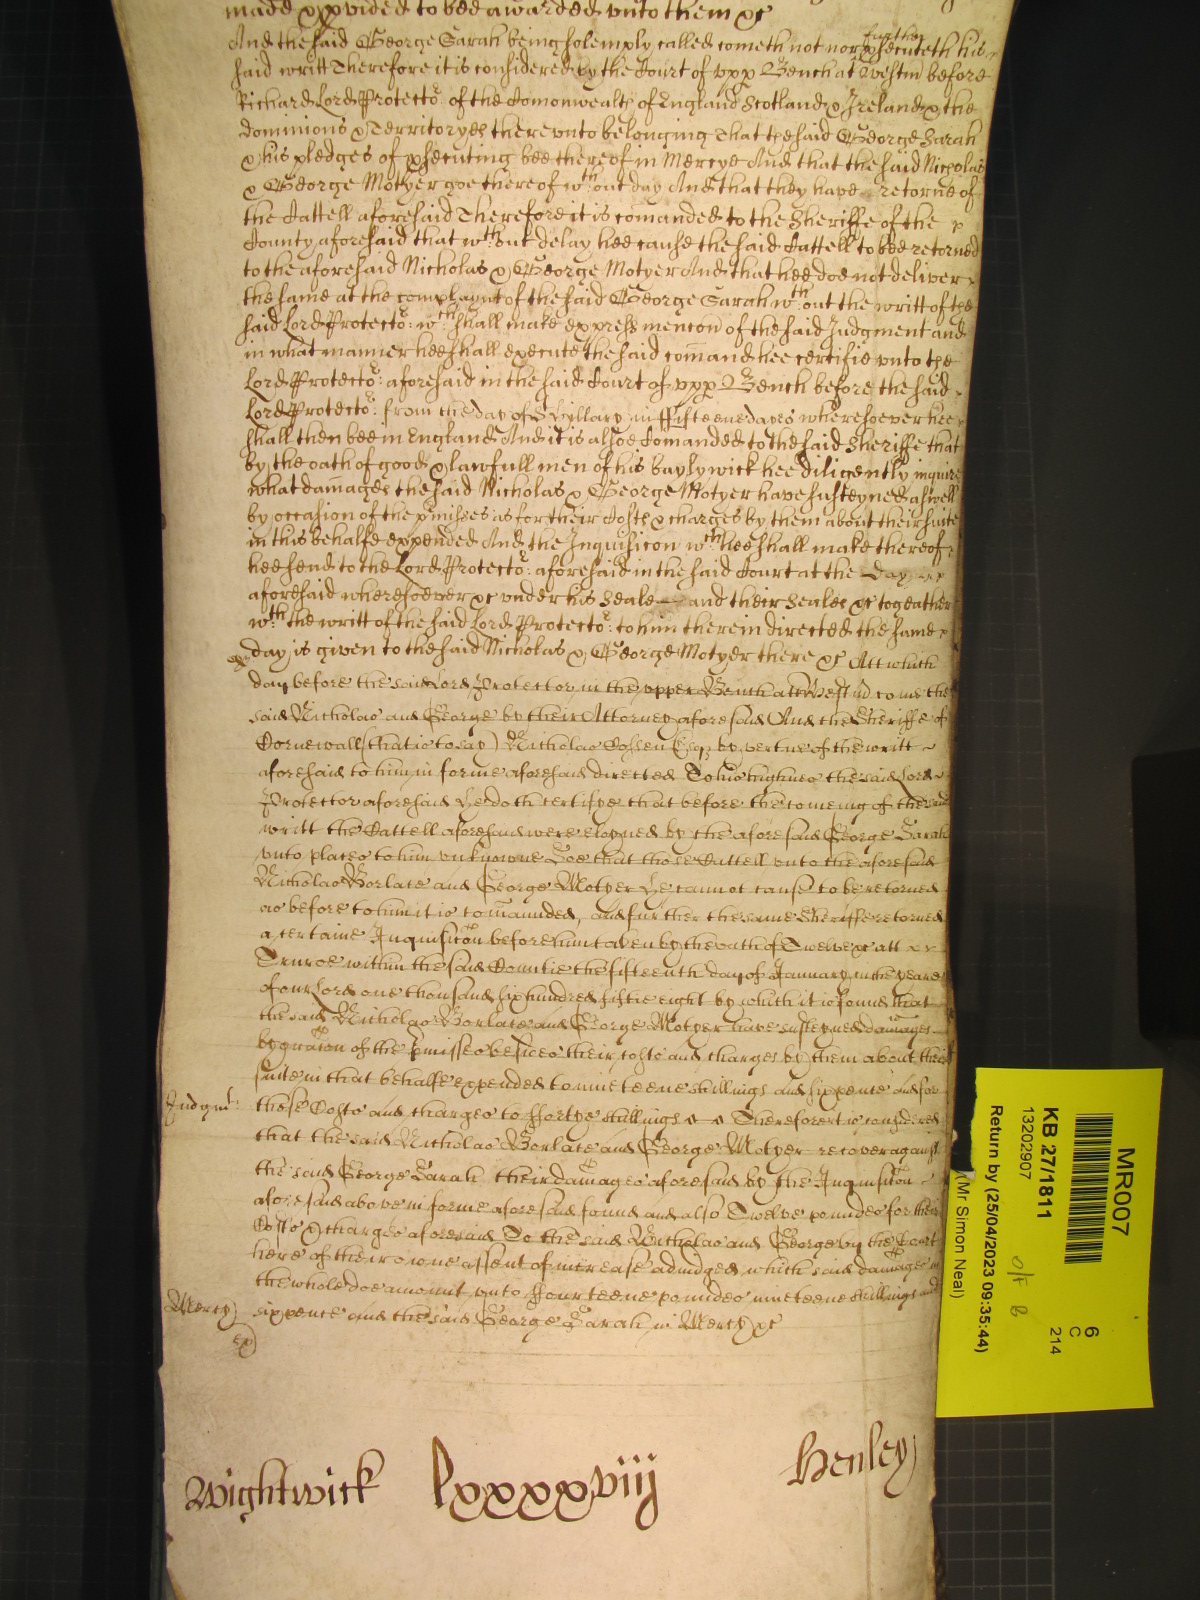 made & pvided to bee awarded unto them &c
And the said George Sarah being solemply called cometh not nor further psecuteth his
said writt Therefore it is considered by the Court of upp Bench at Westm before
Richard Lord Protector of the Comonwealth of England Scotland & Ireland & the
dominions & Territoryes thereunto belonging That the said George Sarah
& his pledges of psecuting bee thereof in Mercye And that the said Nicholas
& George Motyer goe thereof wth out day And that they have retorne of
the Cattell aforesaid Therefore it is comanded to the Sheriffe of the
County aforesaid that wth out delay hee cause the said Cattell to bee retorned
to the aforesaid Nicholas & George Motyer And that hee doe not deliver
the same at the complaynt of the said George Sarah wth out the writt of the
said Lord Protector: wch shall make express mencon of the said Judgment and
in what manner hee shall execute the said comand hee certifie unto the
Lord Protector: aforesaid in the said Court of upp Bench before the said
Lord Protector: from the day of St Hillary in ffifteene dayes wheresoever hee
shall then bee in England And it is alsoe Comanded to the said Sheriffe that
by the oath of good & lawfull men of his baylywick hee diligently inquire
what damages the said Nicholas & George Motyer have susteyned aswell
by occasion of the pmisses as for their Costs & charges by them about their suite
in this behalfe expended And the Inquisicon wch hee shall make thereof
hee send to the Lord Protector: aforesaid in the said Court at the day
aforesaid wheresoever &c under his Seale and their Seales &c togeather
wth the writt of the said Lord Protector: to him therein directed the same
day is given to the said Nicholas & George Motyer there &c Att which
day before the said Lord Protector in the upper Bench att Westmr come the
said Nicholas and George by their Attorney aforesaid And the Sheriffe of
Cornewall (that is to say) Nicholas Cossen Esqr by vertue of the writt
aforesaid to him in forme aforesaid directed the said Lord
Protector aforesaid he doth certifye that before the comeing of the said
writt the Cattell aforesaid were eloyned by the aforesaid George Sarah
unto places to him unknowne Soe that those Cattell unto the aforesaid
Nicholas Borlace and George Motyer he cannot cause to be retorned
as before to him it is comaunded, and further the same Sheriffe retorned
a certaine Inquisicon before him taken by the oath of Twelve &c att
Truroe within the said Countie the fifteenth day of January in the yeare
of our Lord one thousand six hundred fiftie eight by which it is found that
the said Nicholas Borlace and George Motyer have susteyned damages
by occasion of the pmisses besides their costs and charges by them about their
suite in that behalfe expended to nineteene shillings and sixpence and for
Judgmt: those Costs and charges to ffortye shillings Therefore it is considered
that the said Nicholas Borlace and George Motyer recover against
the said George Sarah their damages aforesaid by the Inquisicon
aforesaid above in forme aforesaid found and also Twelve poundes for their
Costs & charges aforesaid To the said Nicholas and George by the Court
here of their owne assent of increase adiudged which said damages in
the whole doe amount unto ffourteene poundes nineteene shillings and
Mercy sixpence and the said George Sarah in Mercy &c
Wightwick lxxxxviij Henley
MR007
6
C
214
KB 27/1811
13202907
Return by (25/04/2023 09:35:44)
(Mr Simon Neal)